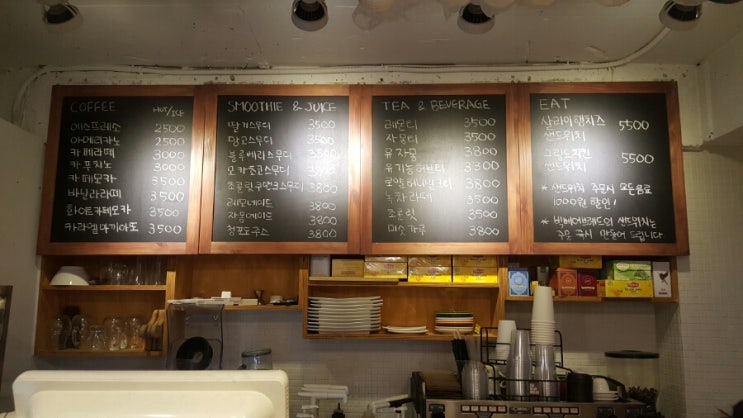 COFFEE HOT/ICE
에스프레소 2500
아메리카노 2500
카페라떼 3000
카푸치노 3000
카페모카 3500
바닐라라떼 3500
화이트카페모카 3500
카라멜마끼아또 3500
SMOOTHIE & JUICE
딸기스무디 3500
망고스무디 3500
블루베리스무디 3800
모카초코스무디 3800
초콜릿쿠앤크스무디 3800
레몬에이드 3800
자몽에이드 3800
청포도주스 3800
TEA & BEVERAGE
레몬티 3500
자몽티 3500
유자몽 3800
유기농허브티 3300
로얄허니밀크티 3800
녹차라떼 3500
초콜릿 3500
미숫가루 3800
EAT
사라미햄치즈
샌드위치 5500
그릴드치킨
샌드위치 5500
* 샌드위치 주문시 모든음료
1000원 할인!
* 빈베어브레드의 샌드위치는
주문 즉시 만들어 드립니다